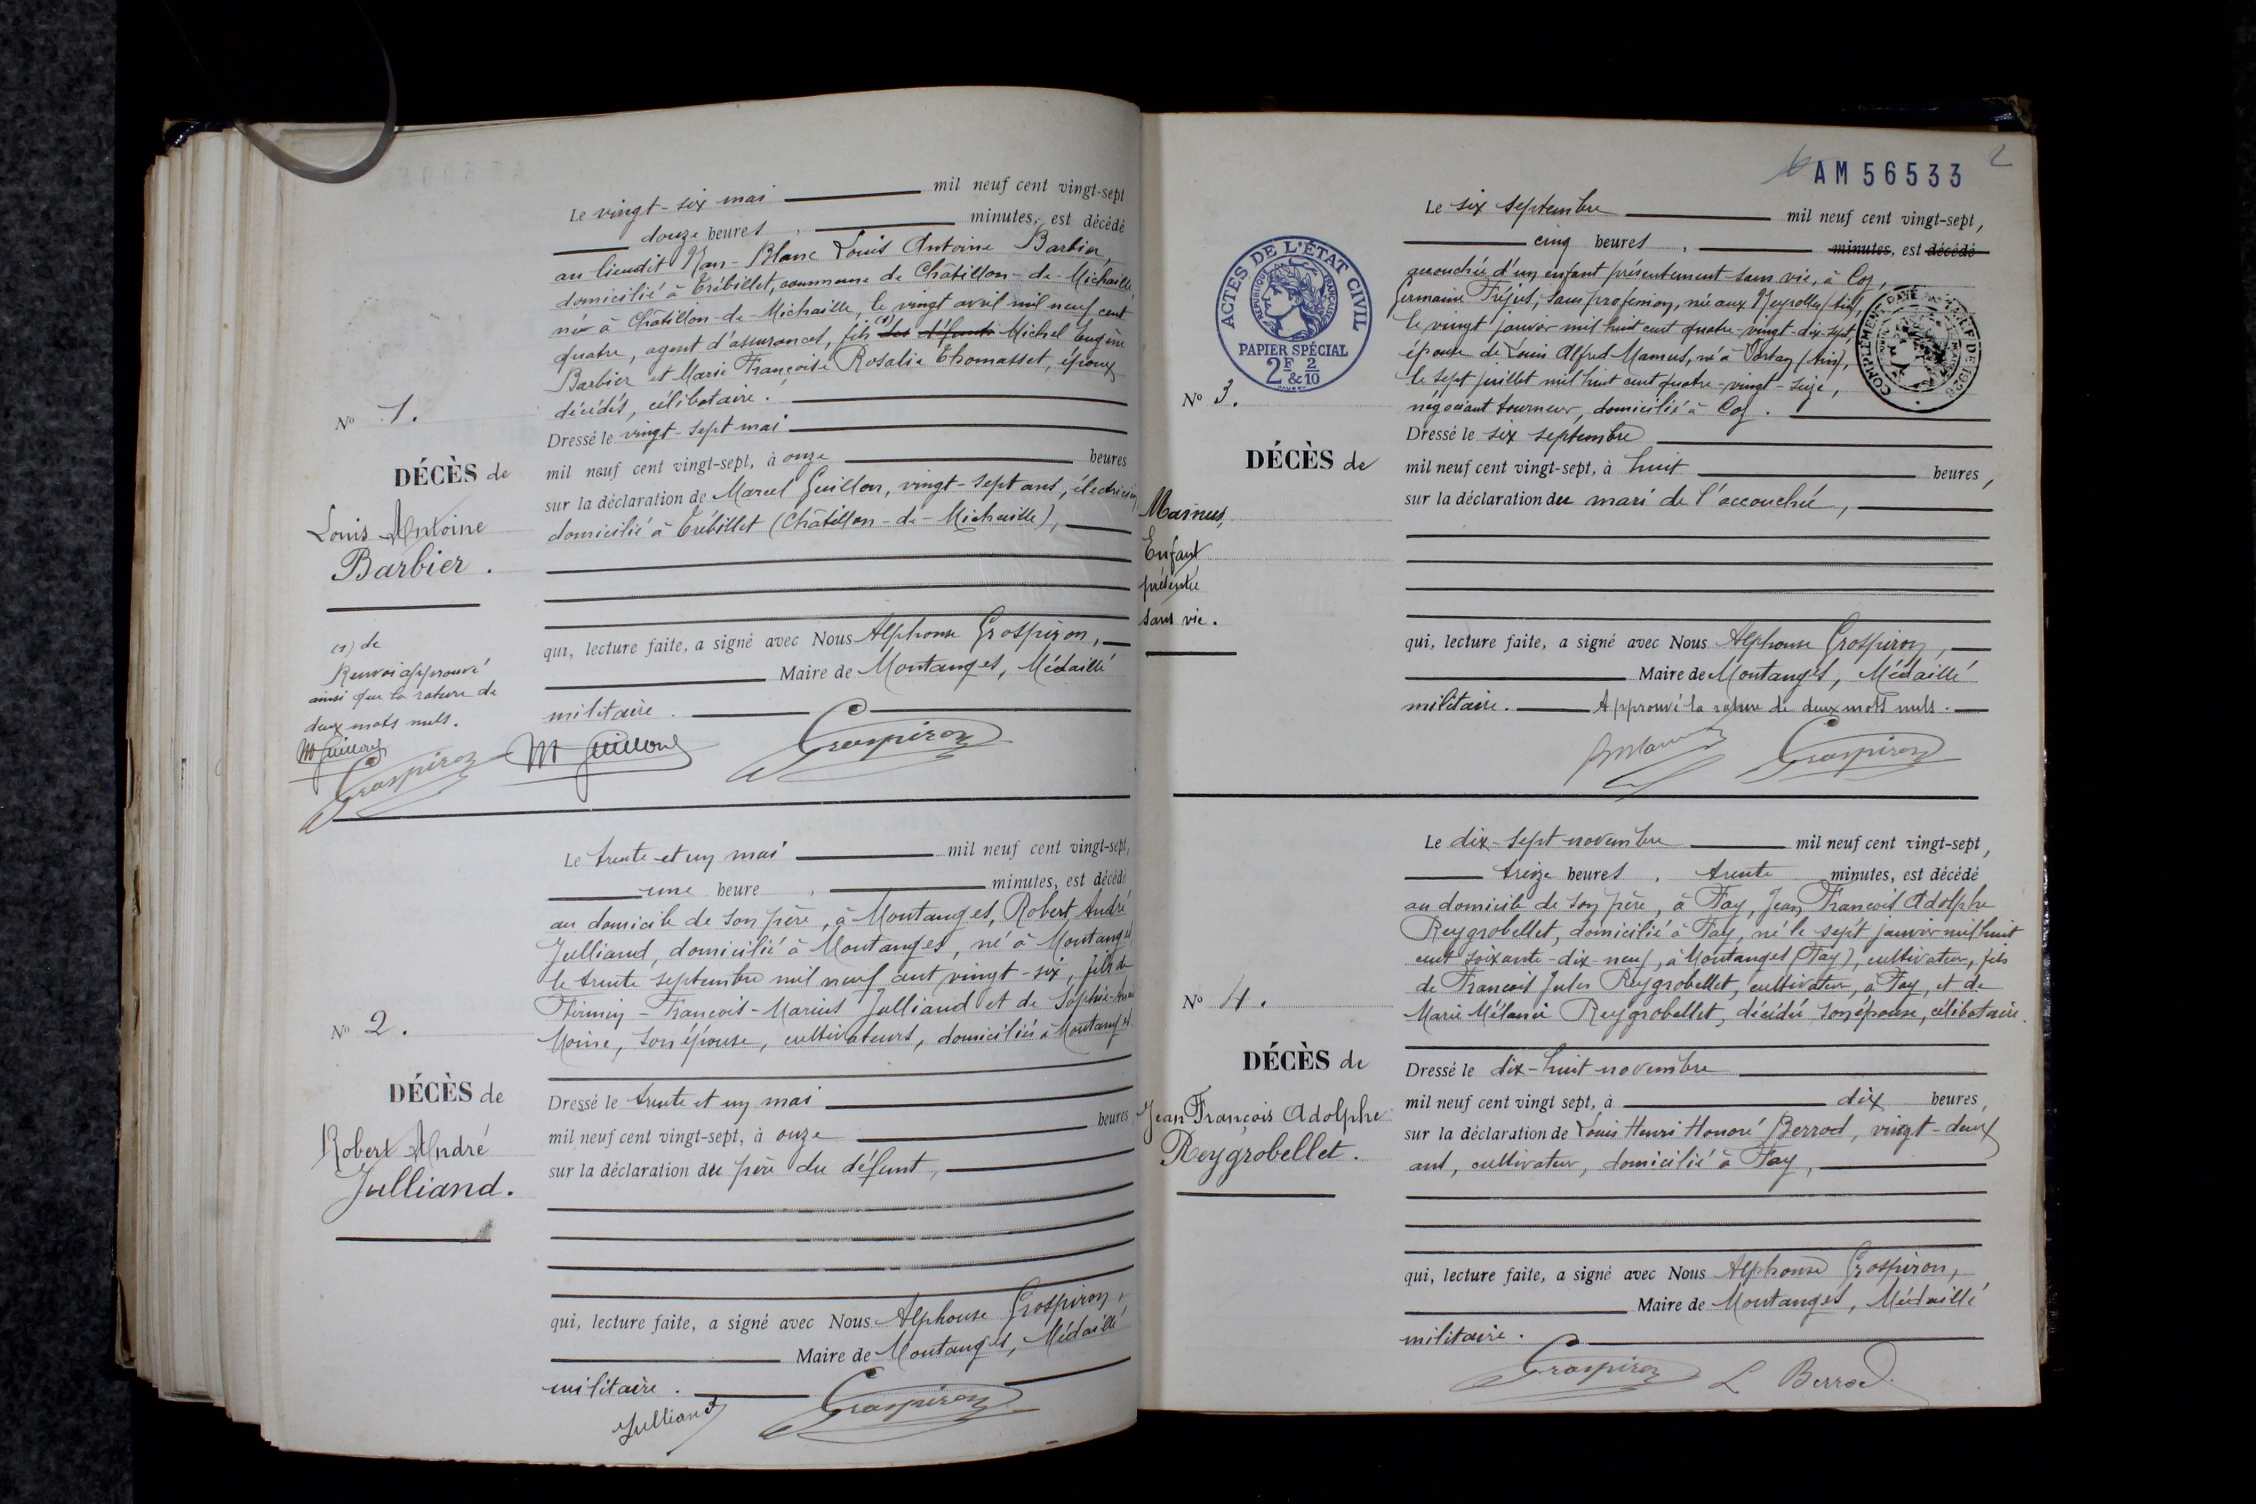 Le vingt-six mai mil neuf cent vingt-sept
douze heures, minutes, est décédé
au lieudit Nan-Blanc Louis Antoine Barbier,
domicilié à Trébillet, commune de Châtillon-de-Michaille,
né à Châtillon-de-Michaille, le vingt avril mil neuf cent
quatre, agent d'assurances, fils (1) des défunts Michel Eugène
Barbier et Marie Françoise Rosalie Thomasset, époux
décédés, célibataire.
Dressé le vingt-sept mai
mil neuf cent vingt-sept, à onze heures
sur la déclaration de Marcel Guillon, vingt-sept ans, électricien,
domicilié à Trébillet (Châtillon-de-Michaille),
qui, lecture faite, a signé avec Nous Alphonse Grospiron,
Maire de Montanges, Médaillé
militaire.
M Guillon Grospiron
No 1.
DÉCÈS de
Louis Antoine
Barbier.
(1) de
Renvoi approuvé
ainsi que la rature de
deux mots nuls.
M Guillon
Grospiron
Le trente et un mai mil neuf cent vingt-sept,
une heure, minutes, est décédé
au domicile de son père, à Montanges, Robert André
Julliand, domicilié à Montanges, né à Montanges
le trente septembre mil neuf cent vingt-six, fils de
Firmin-François-Marius Julliand et de Sophie
Moine, son épouse, cultivateurs, domiciliés à Montanges.
Dressé le trente et un mai
mil neuf cent vingt-sept, à onze heures
sur la déclaration du père du défunt,
qui, lecture faite, a signé avec Nous Alphonse Grospiron,
Maire de Montanges, Médaillé
militaire.
Julliand Grospiron
No 2.
DÉCÈS de
Robert André
Julliand.
AM 56533
2
ACTES DE L'ÉTAT CIVIL
RÉPUBLIQUE FRANÇAISE
PAPIER SPÉCIAL
2F & 2/10
Le six septembre mil neuf cent vingt-sept,
cinq heures, minutes, est décédé
accouchée d'un enfant présentement sans vie, à Coz,
Germaine Fréjus, sans profession, née aux Neyrolles (Ain),
le vingt janvier mil huit cent quatre-vingt-dix-sept,
épouse de Louis Alfred Mamus, né à Vorbay (Ain),
le sept juillet mil huit cent quatre-vingt-seize,
négociant tourneur, domicilié à Coz.
Dressé le six septembre
mil neuf cent vingt-sept, à huit heures,
sur la déclaration du mari de l'accouchée,
qui, lecture faite, a signé avec Nous Alphonse Grospiron,
Maire de Montanges, Médaillé
militaire. Approuvé la rature de deux mots nuls.
Grospiron
No 3.
DÉCÈS de
Enfant
présenté
sans vie.
Le dix-sept novembre mil neuf cent vingt-sept,
treize heures, trente minutes, est décédé
au domicile de son père, à Fay, Jean François Adolphe
Reygrobellet, domicilié à Fay, né le sept janvier mil huit
cent soixante-dix-neuf, à Montanges (Fay), cultivateur, fils
de François Jules Reygrobellet, cultivateur, à Fay, et de
Marie Mélanie Reygrobellet, décédée, son épouse, célibataire.
Dressé le dix-huit novembre
mil neuf cent vingt sept, à dix heures,
sur la déclaration de Louis Henri Honoré Berrod, vingt-deux
ans, cultivateur, domicilié à Fay,
qui, lecture faite, a signé avec Nous Alphonse Grospiron,
Maire de Montanges, Médaillé
militaire.
Grospiron L Berrod
No 4.
DÉCÈS de
Jean François Adolphe
Reygrobellet.